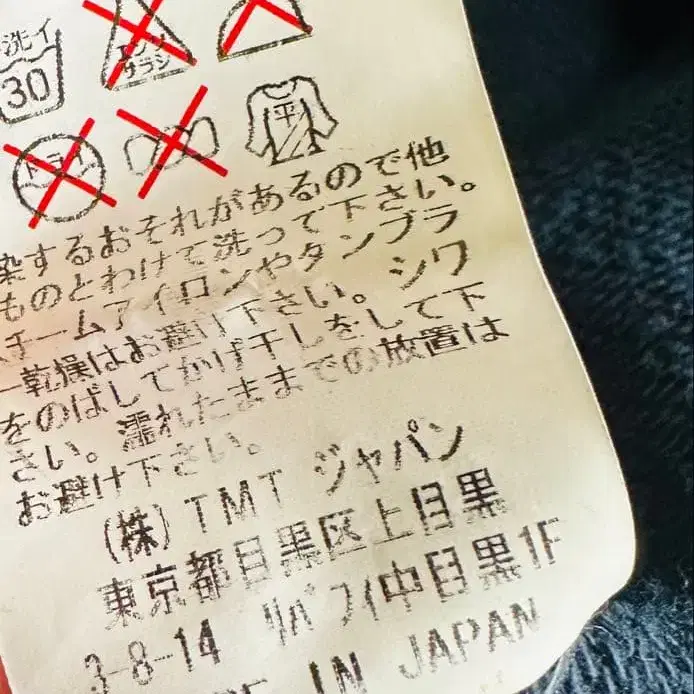 洗イ
30
エンソ
サラシ
ドライ
平
染するおそれがあるので他
ものとわけて洗って下さい。
スチームアイロンやタンブラ
ー乾燥はお避け下さい。シワ
をのばしてかげ干しをして下
さい。濡れたままでの放置は
お避け下さい。
(株)TMTジャパン
東京都目黒区上目黒
3-8-14 中目黒1F
IN JAPAN